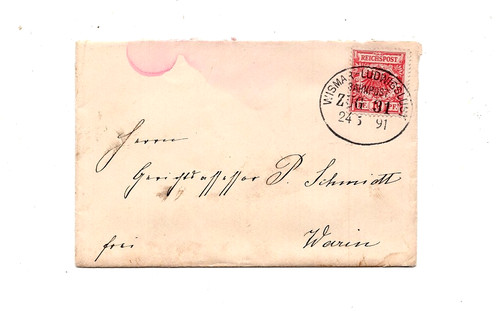 REICHSPOST
WISMAR-LUDWIGSLUST
BAHNPOST
ZUG 91
24 5 91
Herrn
Gerichtsassessor P. Schmidt
frei
Warin